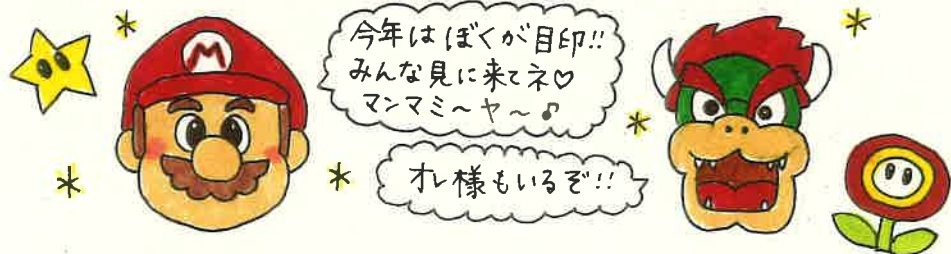 M
今年はぼくが目印!!
みんな見に来てネ♡
マンマミ〜ヤ〜♪
オレ様もいるぞ!!